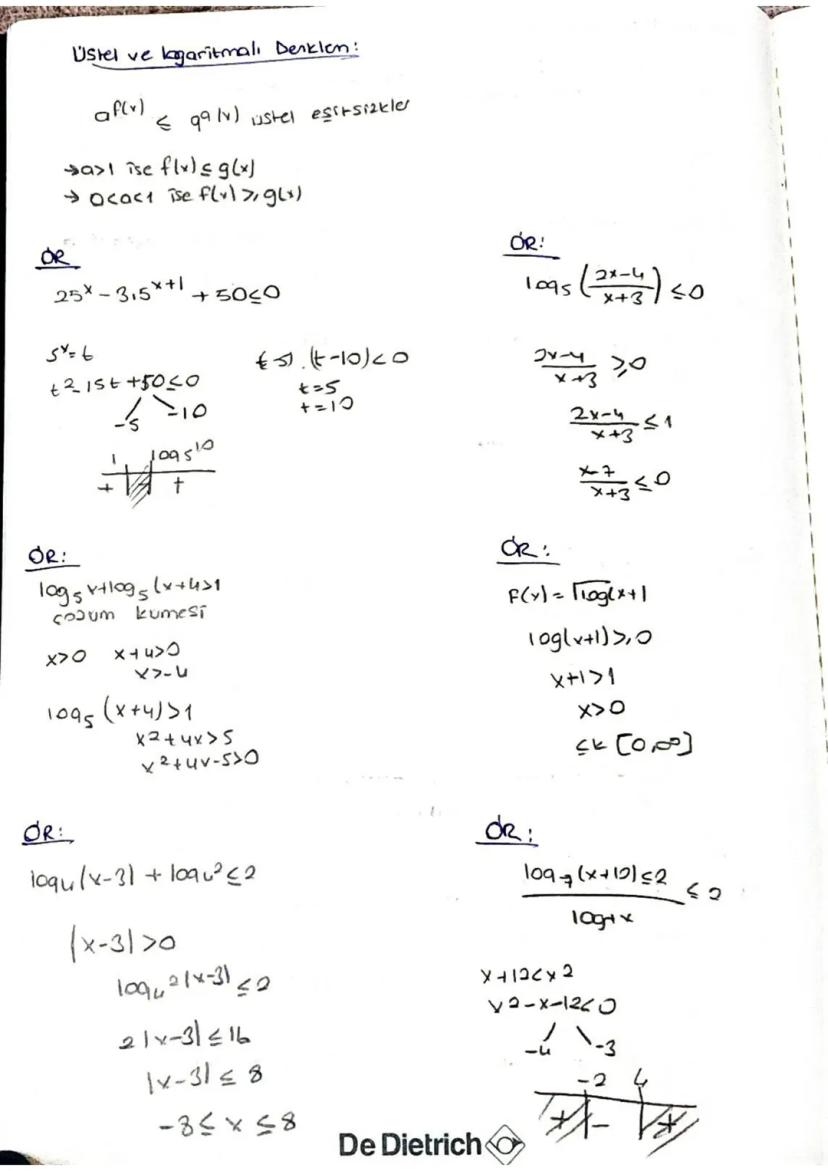 Üstel ve logaritmalı Denklem:
a^f(x) ≤ a^g(x) üstel eşitsizlikler
→a>1 ise f(x)≤g(x)
→ 0<a<1 ise f(x)≥g(x)
ÖR
25^x - 3.5^x+1 + 50≤0
5^x=t
t²-15t+50≤0
-5 -10
1 log5^10
+ +
(t-5).(t-10)<0
t=5
t=10
ÖR:
log5 (2x-4/x+3) ≤0
2x-4/x+3 ≥0
2x-4/x+3 ≤1
x-7/x+3 ≤0
ÖR:
log5 x+log5 (x+4>1
çözüm kümesi
x>0 x+4>0
x>-4
log5 (x+4)>1
x²+4x>5
x²+4x-5>0
ÖR:
f(x)=√log(x+1
log(x+1)≥0
x+1>1
x>0
çk [0,∞]
ÖR:
log4|x-3| + log4² ≤2
|x-3|>0
log4 2|x-3| ≤2
2|x-3| ≤16
|x-3| ≤ 8
-8≤ x ≤8
ÖR:
log7(x+12)≤2 / log7x ≤2
x+12<x²
x²-x-12<0
-4 -3
-2 4
+ - +
De Dietrich